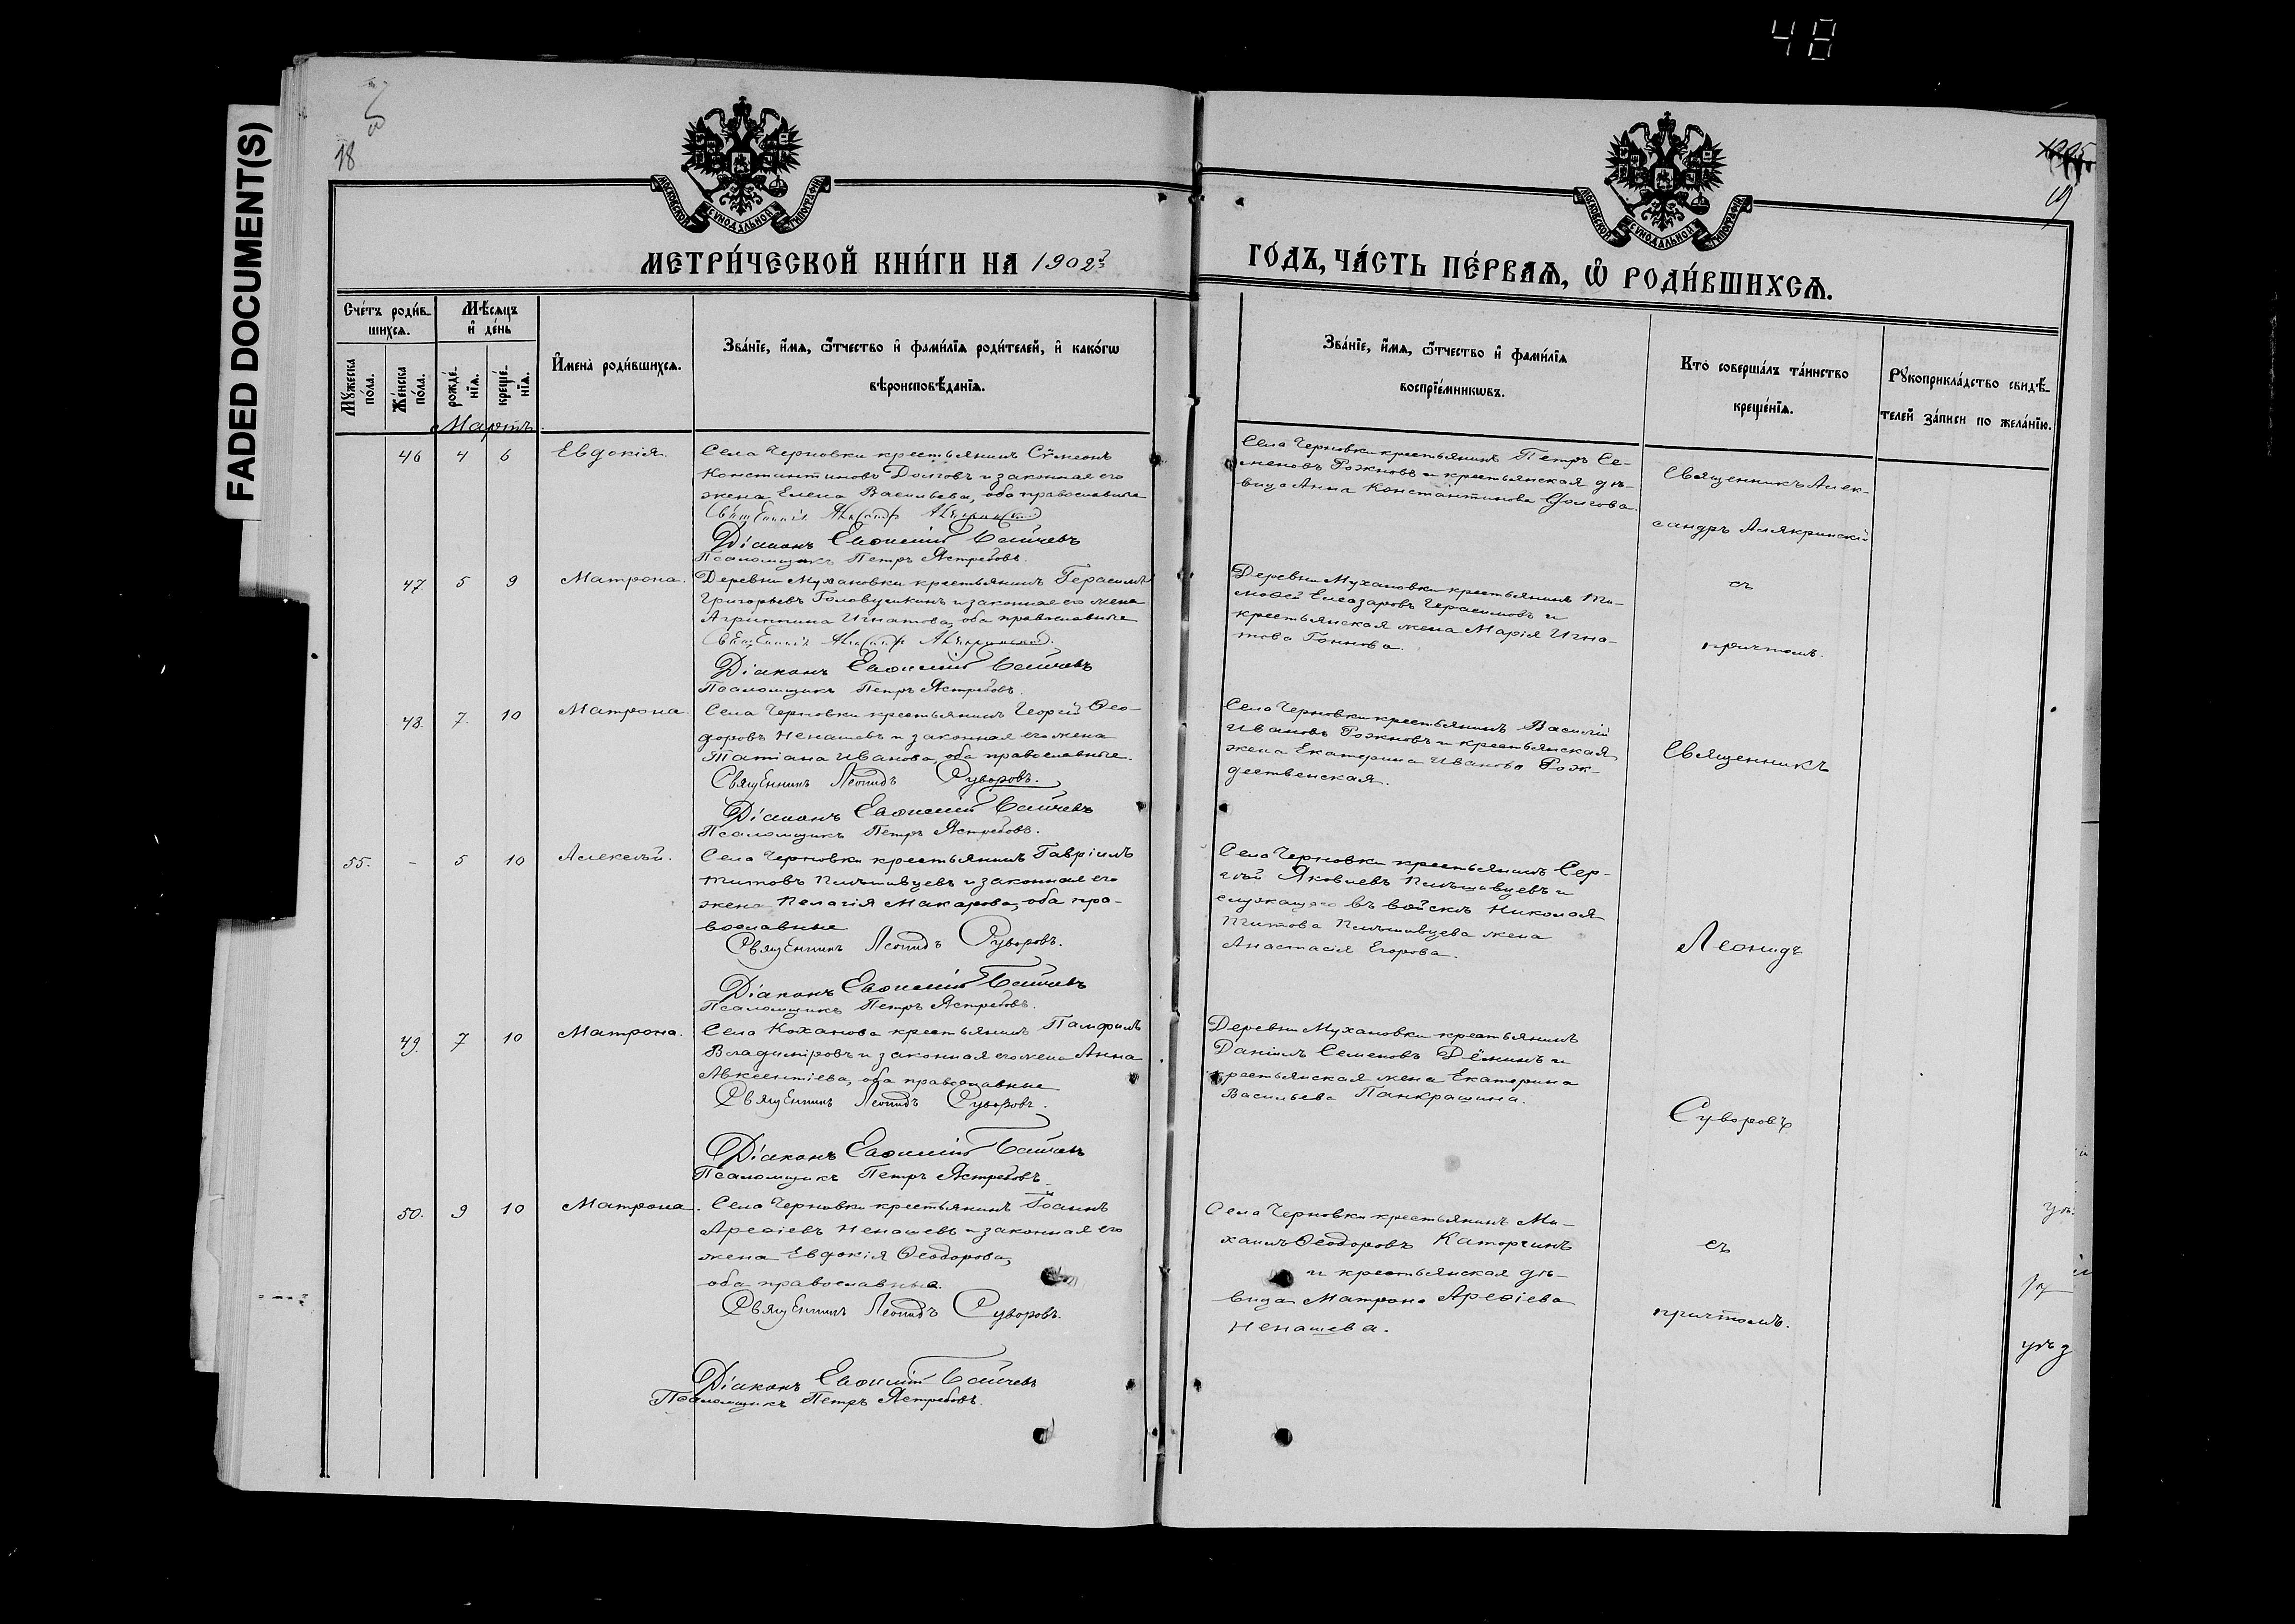 48
FADED DOCUMENT(S)
18
19
МОСКОВСКОЙ СѴНОДАЛЬНОЙ ТИПОГРАФІИ
МОСКОВСКОЙ СѴНОДАЛЬНОЙ ТИПОГРАФІИ
МЕТРИ́ЧЕСКОЙ КНИ́ГИ НА 1902й
ГО́ДЪ, ЧА́СТЬ ПЕ́РВАѦ, Ѡ҆ РОДИ́ВШИХСѦ.
Сче́тъ роди́в-
шихсѧ.
Мѣ́сѧцъ
и҆ де́нь
Мꙋ́жеска
по́ла.
Же́нска
по́ла.
рожде́-
нїѧ.
креще́-
нїѧ.
И҆мена̀ роди́вшихсѧ.
Зва́нїе, и҆́мѧ, ѻ҆́тчество и҆ фами́лїѧ роди́телей, и҆ како́гѡ
вѣроисповѣ́данїѧ.
Зва́нїе, и҆́мѧ, ѻ҆́тчество и҆ фами́лїѧ
воспрїе́мникѡвъ.
Кто̀ соверша́лъ та́инство
креще́нїѧ.
Рꙋкоприкла́дство свидѣ́-
телей за́писи по жела́нїю.
Мартъ.
46 4 6 Евдокія.
Села Черновки крестьянинъ Сѵмеонъ
Константиновъ Долговъ и законная его
жена Елена Васильева, оба православные
Священникъ Александръ Алякринскій
Діаконъ Евѳимій
Псаломщикъ Петръ Ястребовъ.
Села Черновки крестьянинъ Петръ Се-
меновъ Рожновъ и крестьянская дѣ-
вица Анна Константинова Долгова.
Священникъ Алек-
сандръ Алякринскій
47. 5 9 Матрона.
Деревни Мухановки крестьянинъ Герасимъ
Григорьевъ Головушкинъ и законная его жена
Агриппина Игнатова, оба православные
Священникъ Александръ Алякринскій.
Діаконъ Евѳимій
Псаломщикъ Петръ Ястребовъ.
Деревни Мухановки крестьянинъ Ти-
моѳей Елеазаровъ Герасимовъ и
крестьянская жена Марія Игна-
това
съ
причтомъ.
48. 7. 10 Матрона
Села Черновки крестьянинъ Георгій Ѳео-
доровъ Ненашевъ и законная его жена
Татіана Иванова, оба православные.
Священникъ Леонидъ Суворовъ.
Діаконъ Евѳимій
Псаломщикъ Петръ Ястребовъ.
Села Черновки крестьянинъ Василій
Ивановъ Рожновъ и крестьянская
жена Екатерина Иванова Рож-
дественская.
Священникъ
55. - 5 10 Алексѣй.
Села Черновки крестьянинъ Гавріилъ
Титовъ Плѣшивцевъ и законная его
жена Пелагія Макарова, оба пра-
вославные
Священникъ Леонидъ Суворовъ.
Діаконъ Евѳимій
Псаломщикъ Петръ Ястребовъ.
Села Черновки крестьянинъ Сер-
гѣй Яковлевъ Плѣшивцевъ и
служащаго въ войскѣ Николая
Титова Плѣшивцева жена
Анастасія Егорова.
Леонидъ
49. 7 10 Матрона.
Села Коханова крестьянинъ Памфилъ
Владиміровъ и законная его жена Анна
Авксентіева, оба православные
Священникъ Леонидъ Суворовъ.
Діаконъ Евѳимій
Псаломщикъ Петръ Ястребовъ.
Деревни Мухановки крестьянинъ
Даніилъ Семеновъ Дёминъ и
крестьянская жена Екатерина
Васильева Панкрашина.
Суворовъ
50. 9 10 Матрона.
Села Черновки крестьянинъ Іоаннъ
Ареѳіевъ Ненашевъ и законная его
жена Евдокія Ѳеодорова,
оба православные.
Священникъ Леонидъ Суворовъ.
Діаконъ Евѳимій
Псаломщикъ Петръ Ястребовъ.
Села Черновки крестьянинъ Ми-
хаилъ Ѳеодоровъ Каторгинъ
и крестьянская дѣ-
вица Матрона Ареѳіева
Ненашева.
съ
причтомъ.